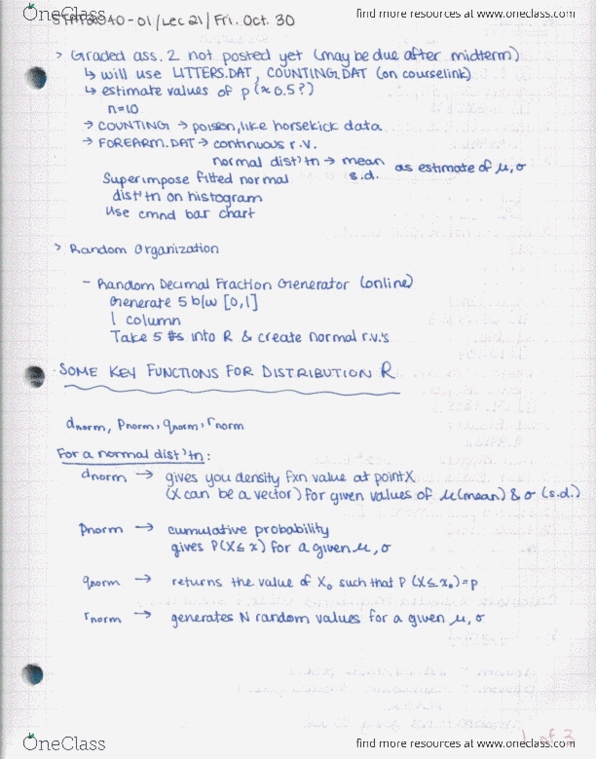 OneClass
find more resources at www.oneclass.com
STAT2040-01/Lec 21/Fri. Oct. 30
> Graded ass. 2 not posted yet (may be due after midterm)
↳ will use LITTERS.DAT, COUNTING.DAT (on courselink)
↳ estimate values of p (≈0.5?)
n=10
→ COUNTING → poison, like horsekick data
→ FOREARM.DAT → continuous r.v.
normal dist'tn → mean as estimate of μ, σ
s.d.
Superimpose fitted normal
dist'tn on histogram
Use cmnd bar chart
> Random Organization
- Random Decimal Fraction Generator (online)
Generate 5 b/w [0,1]
1 column
Take 5 #s into R & create normal r.v.'s
SOME KEY FUNCTIONS FOR DISTRIBUTION R
dnorm, pnorm, qnorm, rnorm
For a normal dist'tn:
dnorm → gives you density fxn value at point X
(X can be a vector) for given values of μ (mean) & σ (s.d.)
pnorm → cumulative probability
gives P(X≤x) for a given μ, σ
qnorm → returns the value of X₀ such that P (X≤x₀)=p
rnorm → generates N random values for a given μ, σ
1 of 3
OneClass
find more resources at www.oneclass.com